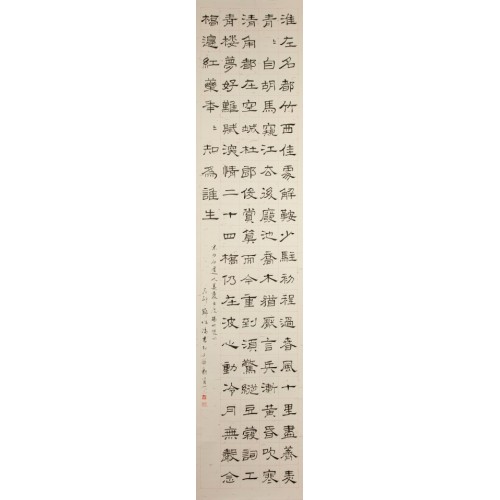 淮左名都竹西佳處解鞍少駐初程過春風十里盡薺麥
青〻自胡馬窺江去後廢池喬木猶厭言兵漸黃昏吹寒
清角都在空城杜郎俊賞算而今重到須驚縱豆蔻詞工
青樓夢好難賦深情二十四橋仍在波心動冷月無聲念
橋邊紅藥年〻知為誰生